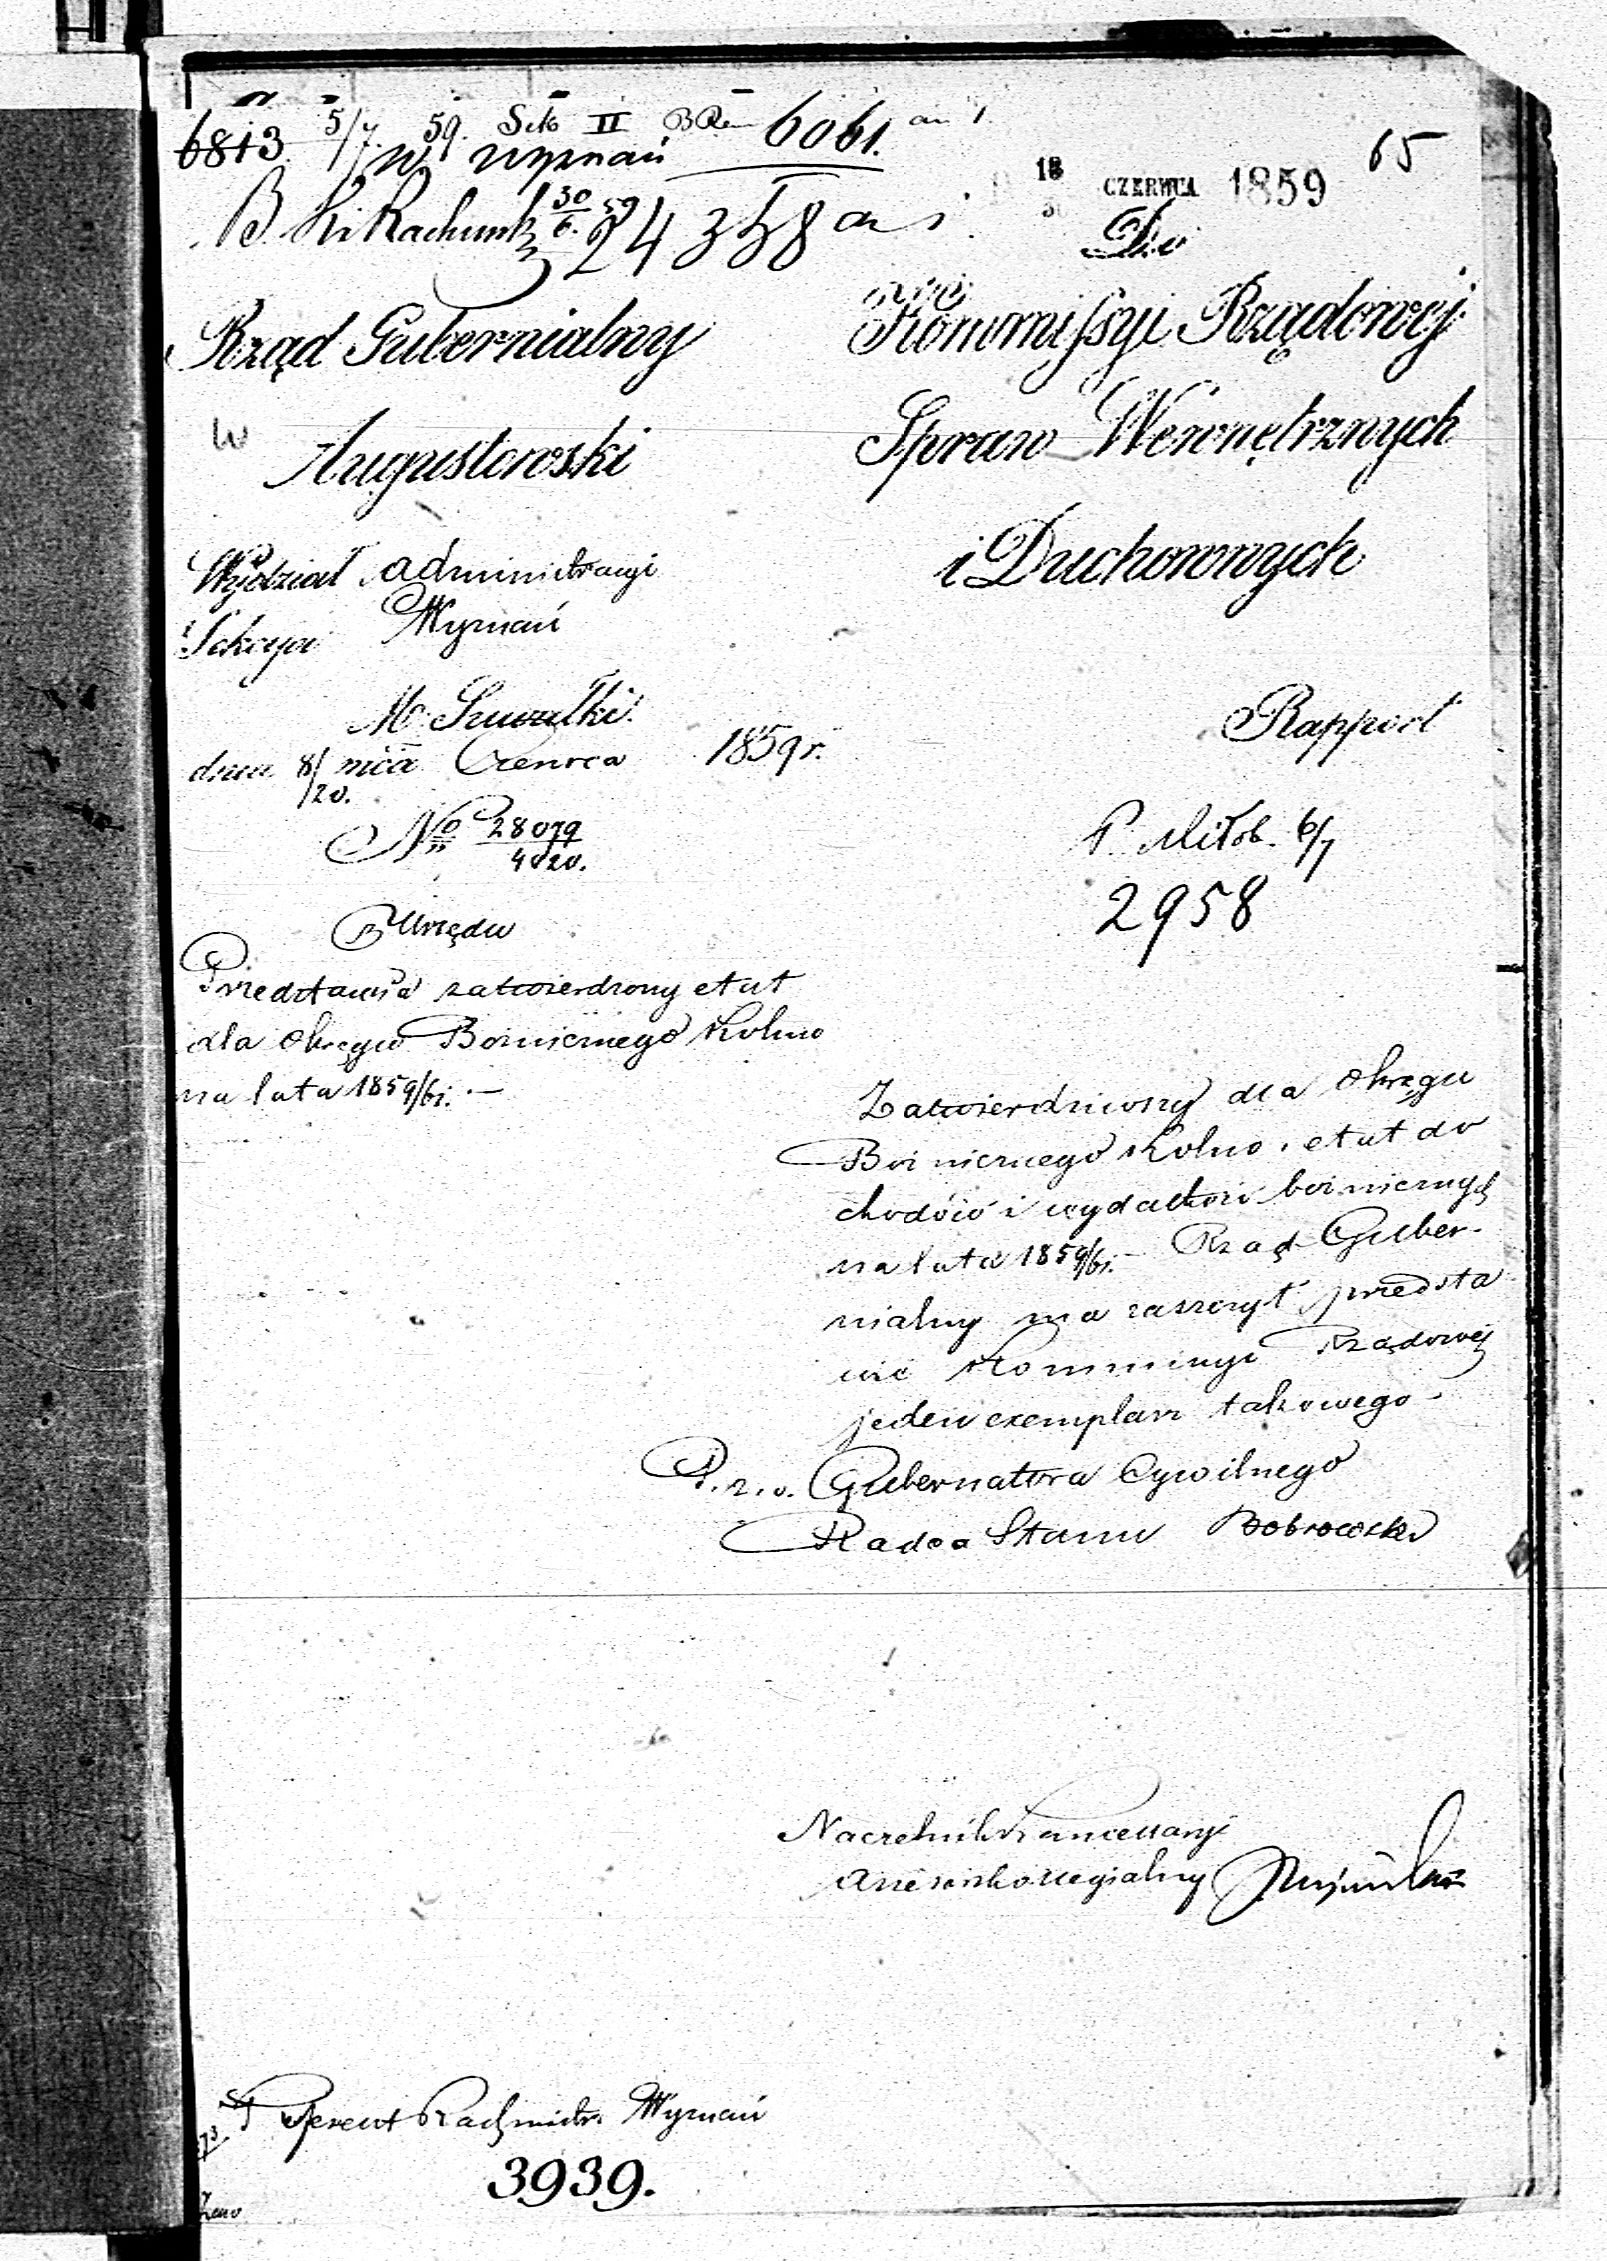 6813 5/7 59. Sek II 6061.
w Wyznań
65
18 CZERWCA 1859
30
24358
Do
Rząd Gubernialny
Kommissyi Rządowej
Augustowski
Spraw Wewnętrznych
i Duchownych
Wydział Administracyi
Sekcya Wyznań
M. Suwałki
dnia 8/20. mca Czerwca 1859 r.
Rapport
No 28079
4020.
2958
Z Urzędu
Przedstawia zatwierdzony etat
dla Okręgu Bożniczego Kolno
na lata 1859/61. —
Zatwierdziwszy dla Okręgu
Bożniczego Kolno, etat do
chodów i wydatków bożniczych
na lata 1859/61. — Rząd Guber-
nialny ma zaszczyt przedsta
wić Kommissyi Rządowej
jeden exemplarz takowego
P. z. o. Gubernatora Cywilnego
Radca Stanu
Naczelnik Kancellaryi
Assessor Kollegialny
Wyznań
3939.